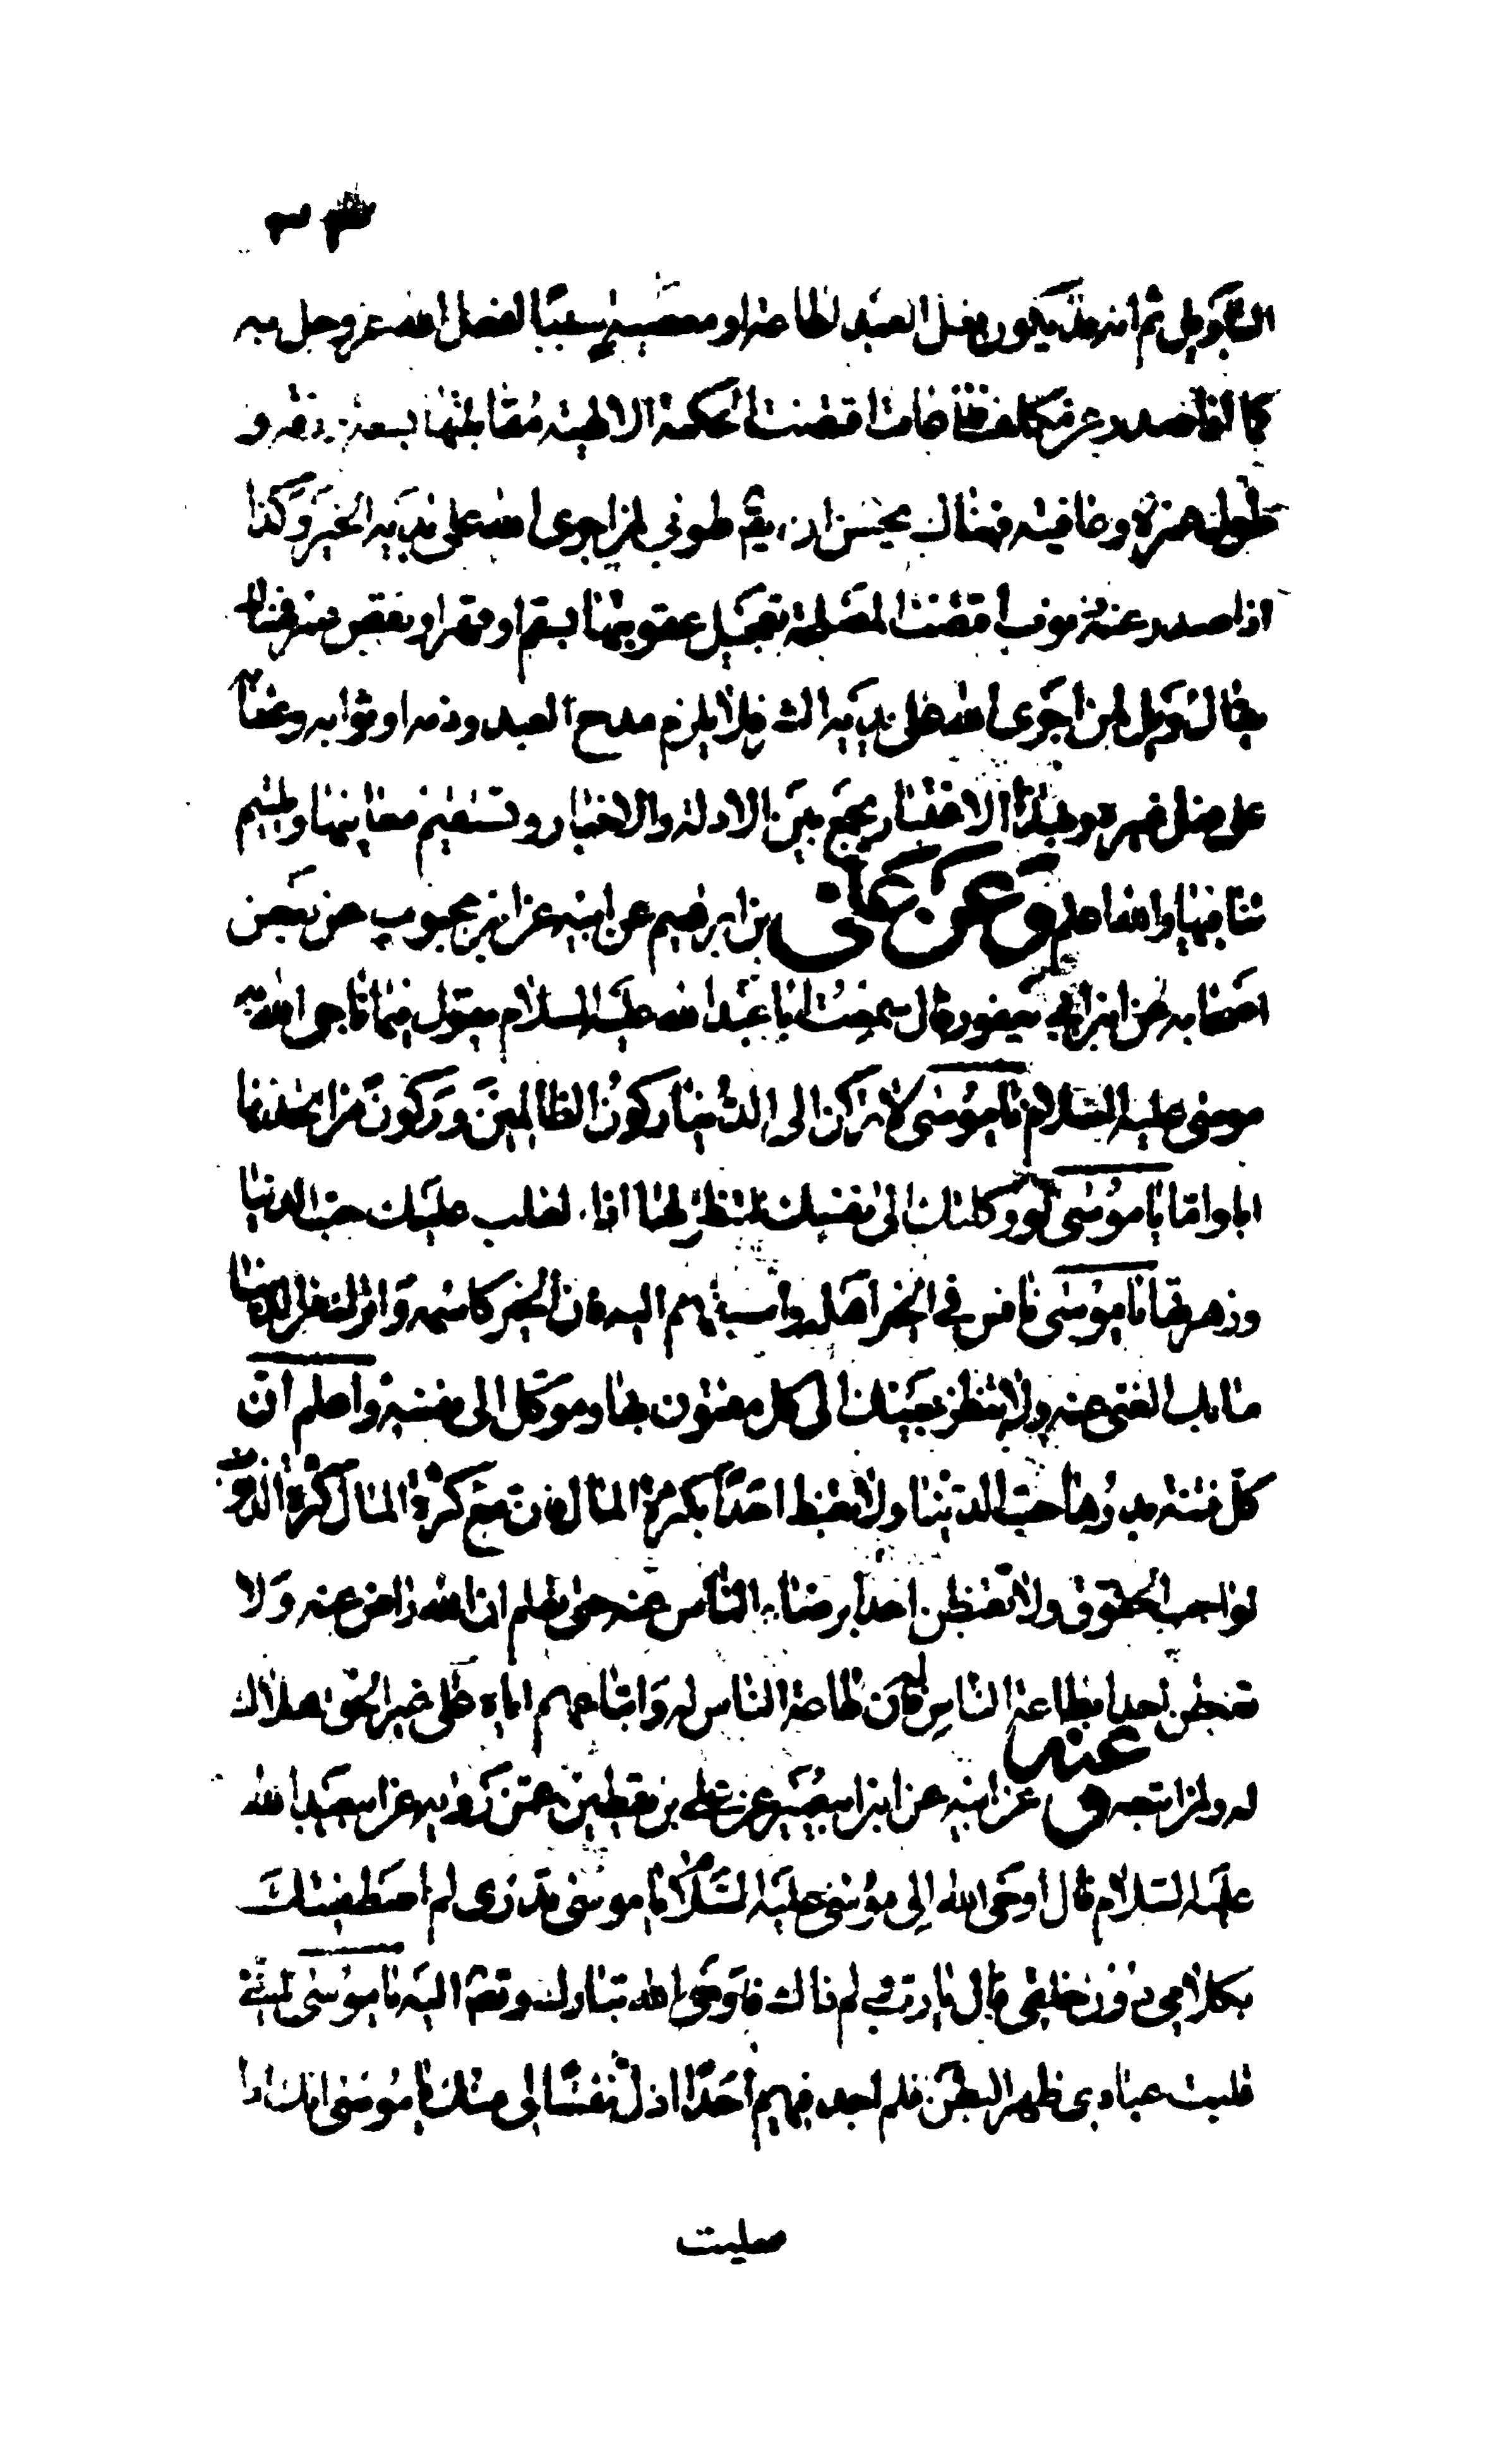 التأويل ثم انه قد يكون فعل العبد لطاعته او معصيته سببا لفعل الله عز وجل به
كما لو صدر عن مكلف طاعات اقتضت الحكمة الالهية مقابلتها بسعة رزقه و
طول عمره وعافيته فهناك يحسن ان يقم طوبى لمن اجرى الله على يديه الخير وكذا
اذا صدر عنه ذنوب اقتضت المصلحة تعجيل عقوبتها بسقم او فقر او نقص منه فهناك
يقال ويل لمن اجرى الله على يديه الشر فلا يلزم مدح العبد وذمه او ثوابه وعقابه
على فعل غيره وبهذا الاعتبار يجمع بين الادلة والاخبار وتستقيم معانيها ويلتئم
تنافيها والله اعلم وعن علي بن ابرهيم عن ابيه عن ابن محبوب عن بعض
اصحابه عن ابن ابي يعفور قال سمعت ابا عبد الله عليه السلام يقول فيما ناجى الله به
موسى عليه السلام يا موسى لا تركن الى الدنيا ركون الظالمين وركون من اتخذها
ابا واما يا موسى لو وكلتك الى نفسك لتنظر لها اذا لغلب عليك حب الدنيا
وزهرتها يا موسى نافس في الخير اهله واستبقهم اليه فان الخير كاسمه واترك من الدنيا
ما بك الغنى عنه ولا تنظر عينك الى كل مفتون بها وموكل الى نفسه واعلم ان
كل فتنة بدؤها حب الدنيا ولا تغبط احدا بكثرة المال فان مع كثرة المال كثرة الذنوب
لواجب الحقوق ولا تغبطن احدا برضاء الناس عنه حتى تعلم ان الله راض عنه ولا
تغبطن احدا بطاعة الناس له فان طاعة الناس له واتباعهم اياه على غير الحق هلاك
له ولمن اتبعه وعنه عن ابيه عن ابن ابي عمير عن علي بن يقطين عمن رواه عن ابي عبد الله
عليه السلام قال اوحى الله الى موسى عليه السلام يا موسى تدري لم اصطفيتك
بكلامي دون خلقي قال يا رب ولم ذاك فاوحى الله تبارك وتعالى اليه يا موسى اني
قلبت عبادي ظهر البطن فلم اجد فيهم احدا اذل نفسا لي منك يا موسى انك اذا
صليت